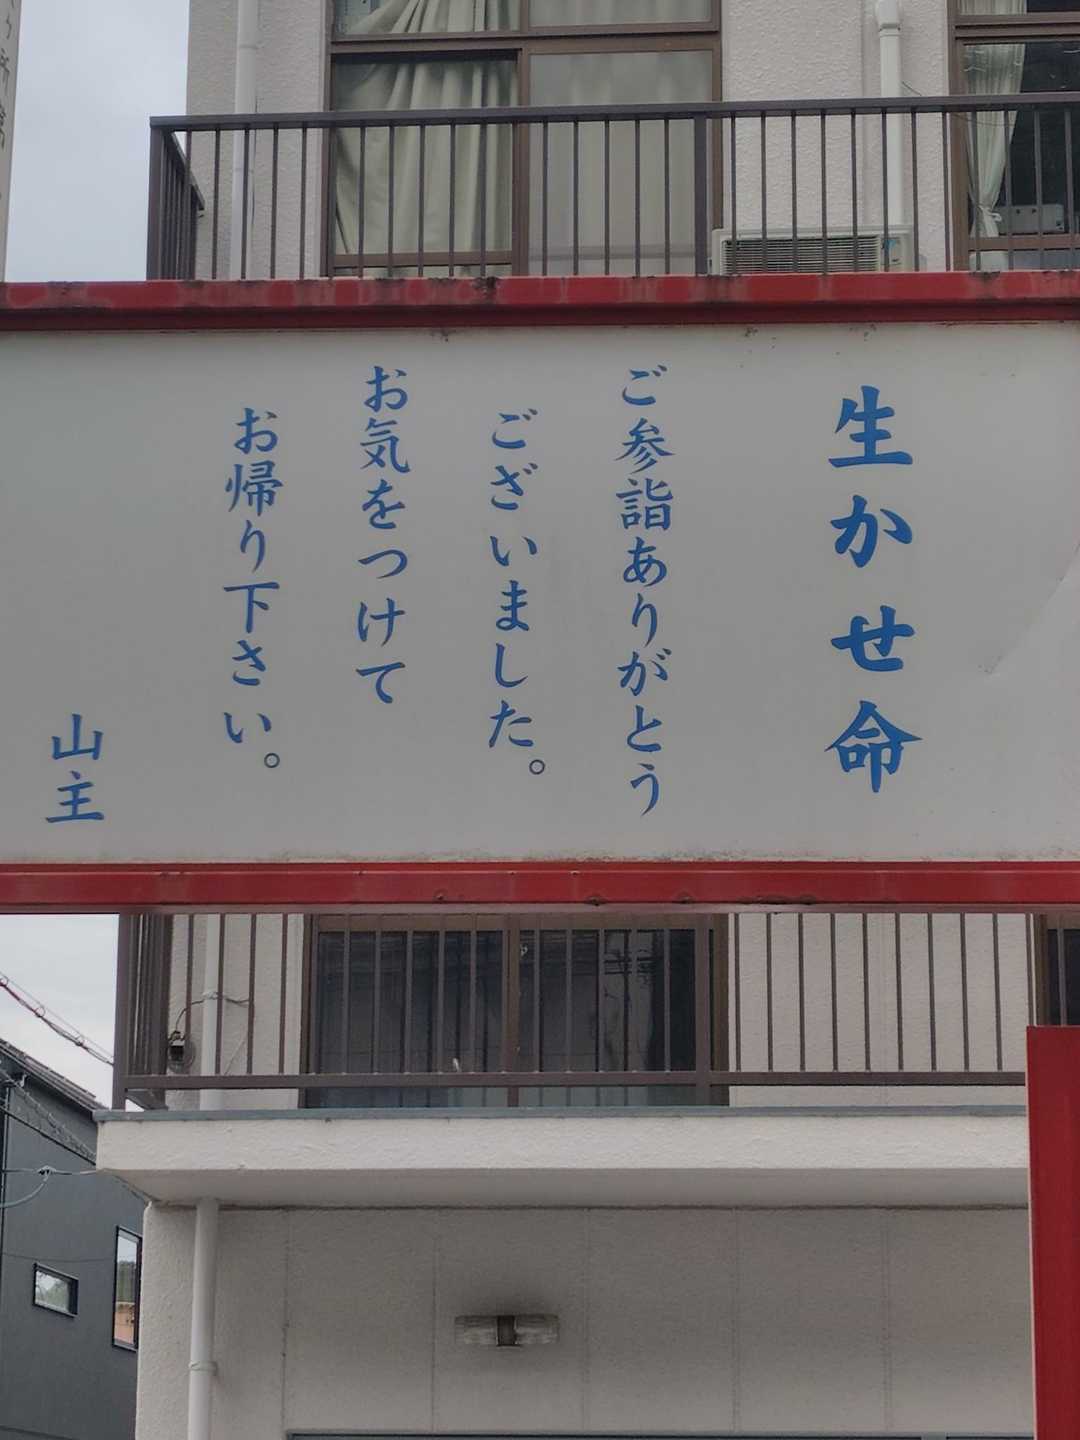 生かせ命
ご参詣ありがとう
ございました。
お気をつけて
お帰り下さい。
山主